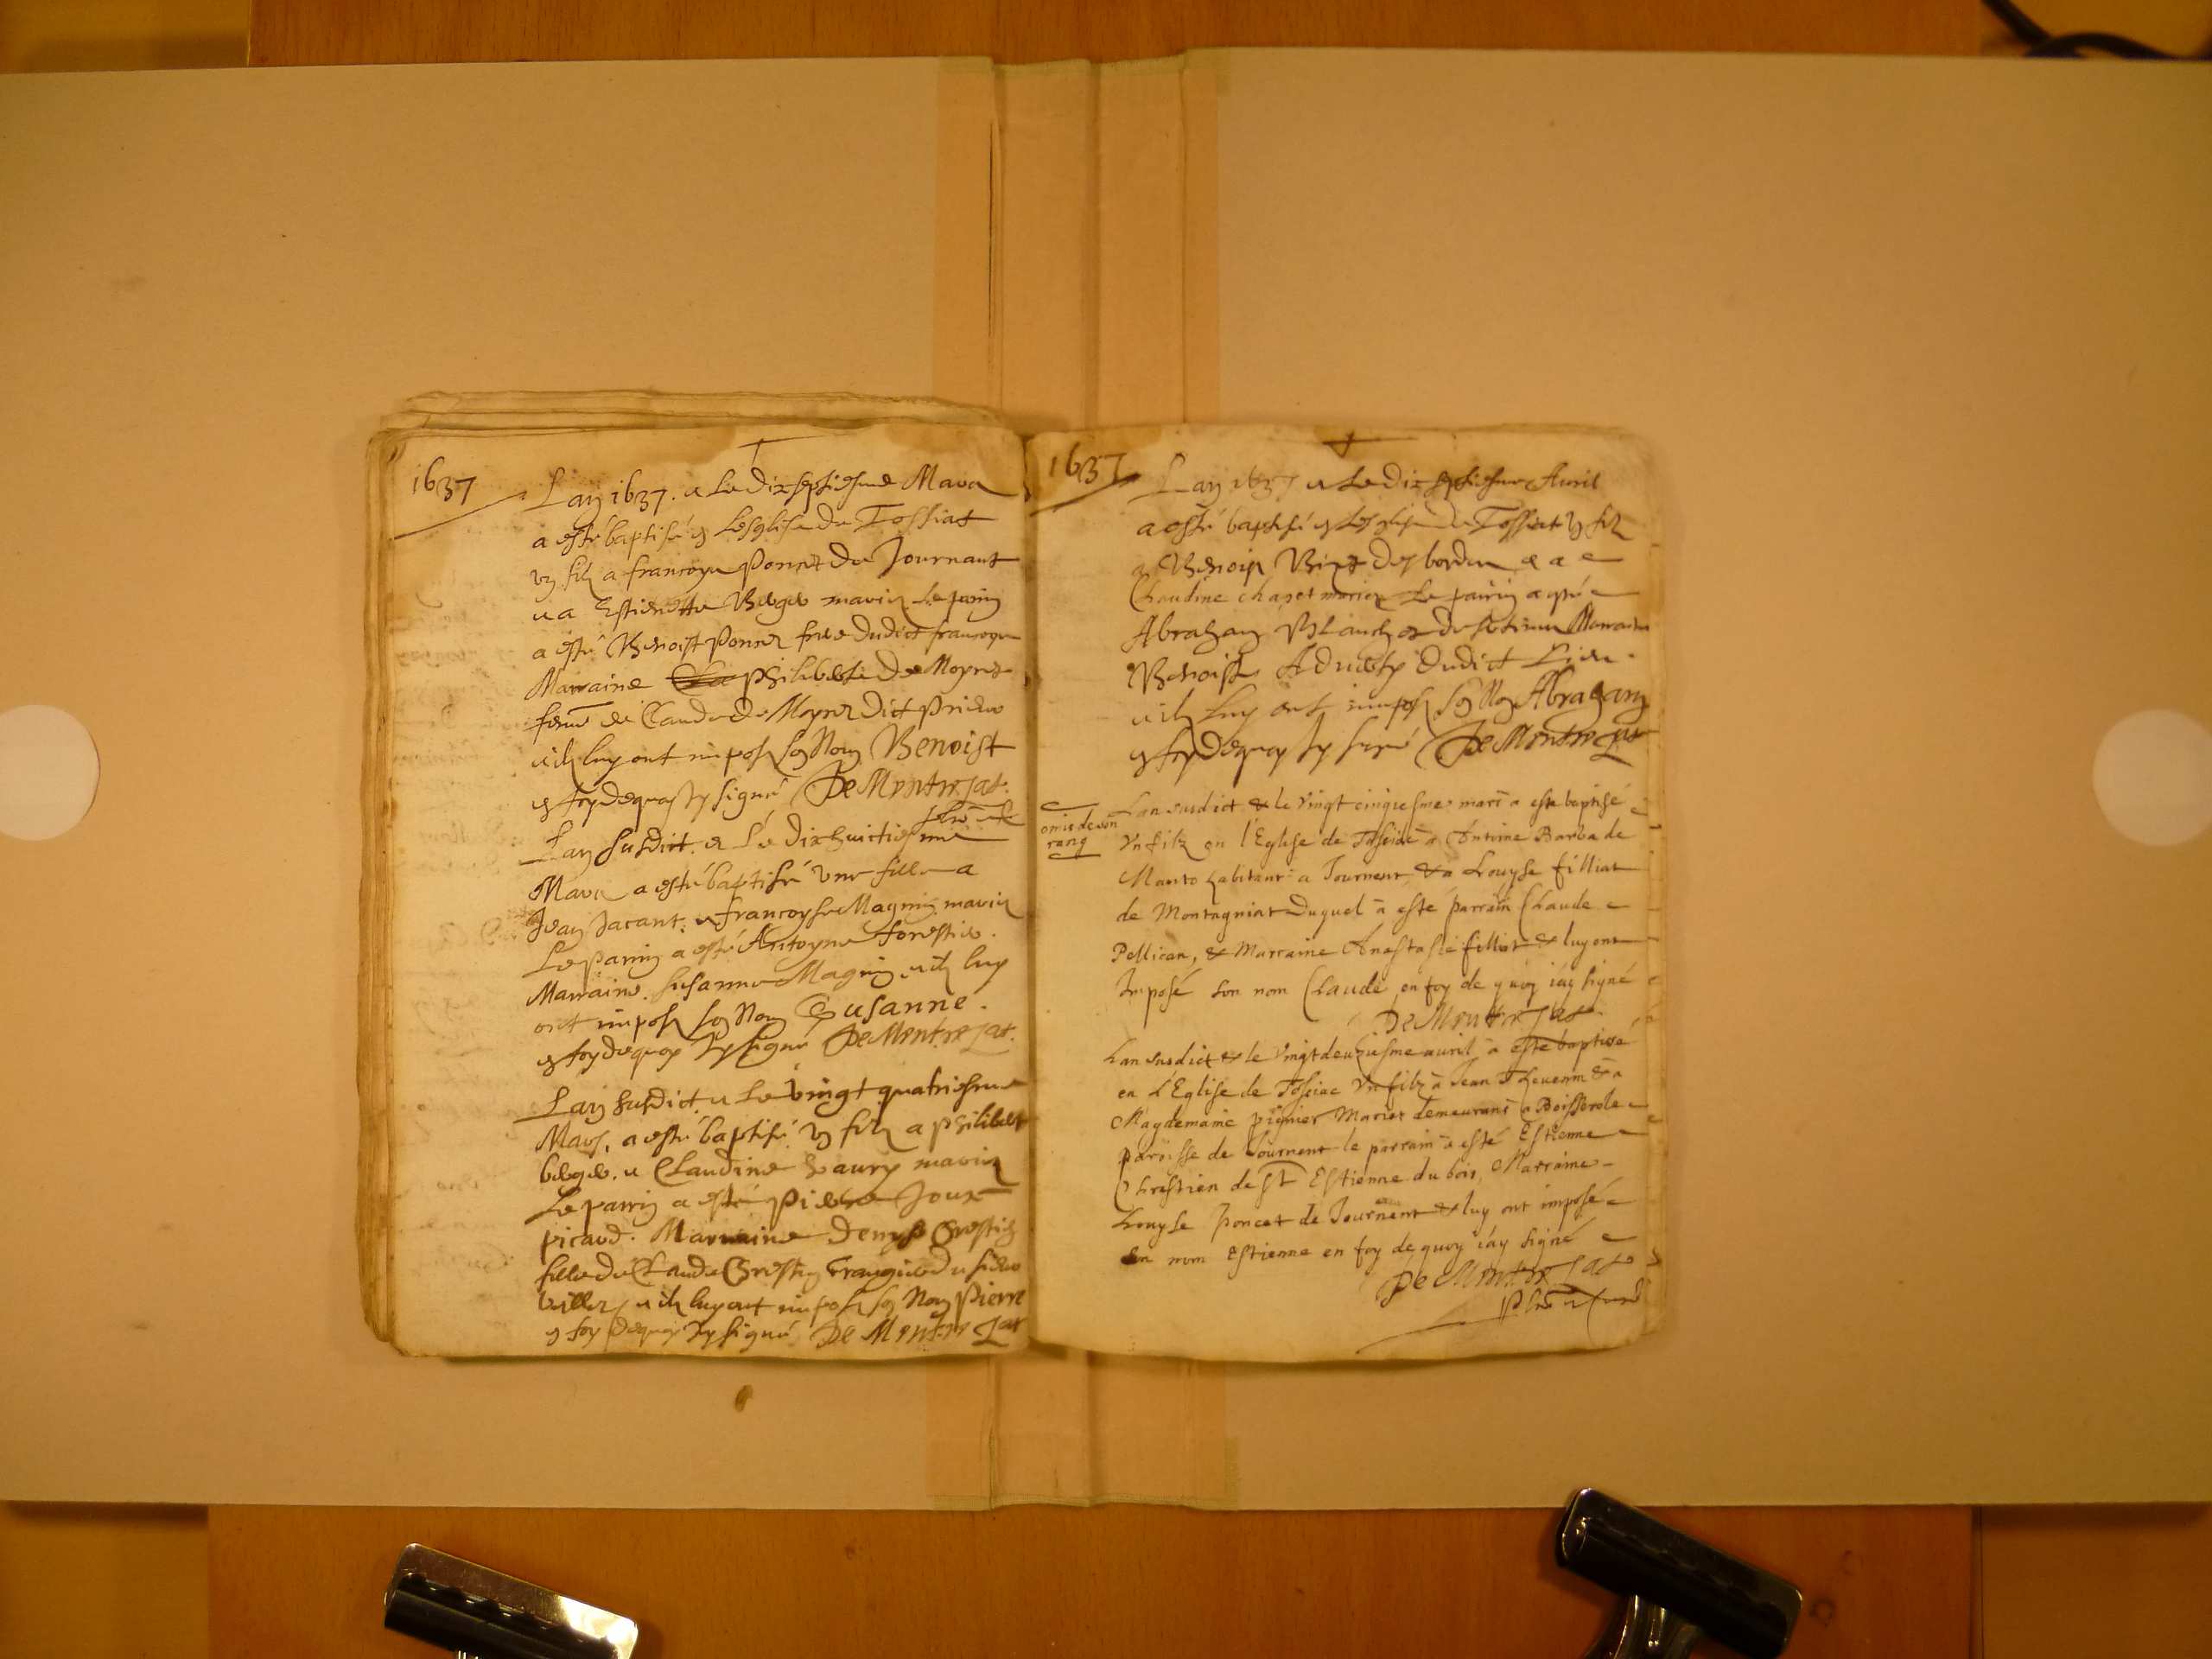 1637
Lan 1637. et le dixseptiesme Mars
a esté baptisé en Lesglise de Tossiat
un filz a francoys Poncet de Journant
et a Estienette Berger mariez le parrin
a esté Benoist Poncet frere dudict francoys
Marraine philiberte de Moyret
feme de Claude de Moyret dict Prieur
et ilz luy ont imposé son Nom Benoist
en foy de quoy Jy signé De Montrejat.
Lan susdict. et Le dixhuictiesme
Mars a esté baptisé une fille a
Jean Jacant. et francoyse Magnin mariez
Le parrin a esté Antoyne forestier.
Marraine. susanne Magnin et ilz luy
ont imposé son Nom Susanne.
en foy de quoy Jy signé De Montrejat.
Lan susdict et le vingt quatriesme
Mars, a esté baptisé un filz a philibert
berger. et Claudine Saury mariez
Le parrin a esté Pierre Joux
picard. Marraine Denyse Crestin
fille de Claude Crestin Grangier du sieur
et ilz luy ont imposé son Nom Pierre
en foy de quoy Jy signé De Montrejat
1637
Lan 1637 et le dixseptiesme Avril
a esté baptisé en Lesglise de Tossiat un filz
a Benoist des bordes et a
Claudine chapet mariez Le parrin a esté
Abraham Blanch Marraine
Benoiste dudict Lieu.
et ilz Luy ont imposé son Nom Abraham
en foy de quoy Jy signé De Montrejat
omis de son
rang
Lan susdict & le vingt cinquesme mars a este baptisé
Un filz en l'Eglise de Tossiac à Antoine Barba de
Manto habitant a Journent & a Louyse filliat
de Montagniat Duquel à esté parrain Claude
Pellican, & Marraine Anestasie filliat & luy ont
Imposé son nom Claude en foy de quoy iáy signé
De Montrejat.
Lan susdict & le vingtdeuxiesme auril à este baptisé
en L'Eglise de Tossiac Un filz à Jean Theuenin & a
Magdemaine pignier Mariez demeurans a Boisserole
paroisse de Journent le parrain à esté Estienne
Chrestien de St Estienne du bois, Marraine
Louyse Poncet de Journent & luy ont imposé
son nom Estienne en foy de quoy iáy signé
De Montrejat